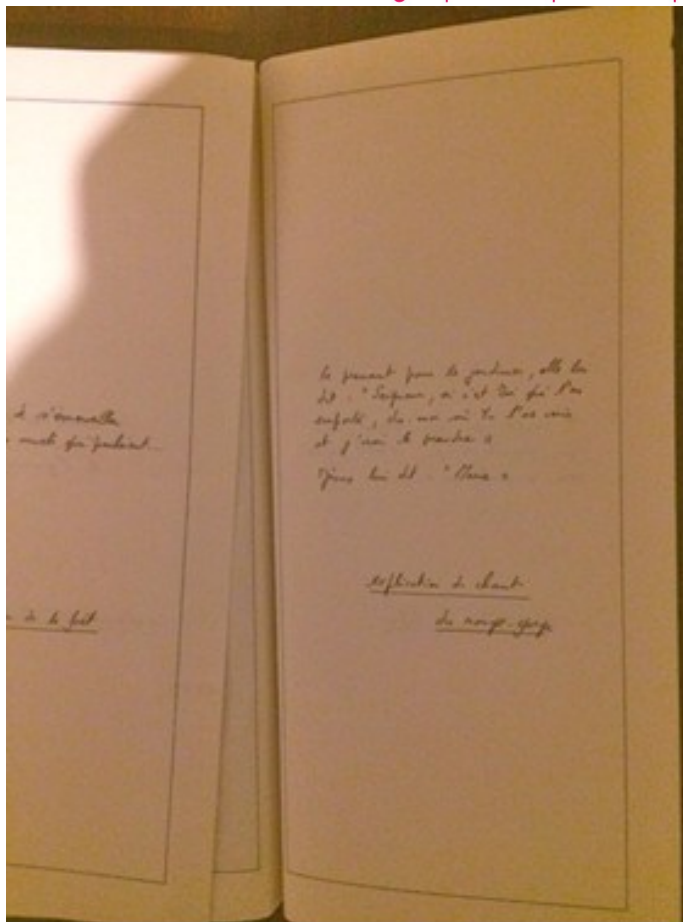 à s'émerveiller
muets qui parlaient...
de la forêt
le prenant pour le jardinier, elle lui
dit : "Seigneur, si c'est Toi qui l'as
emporté, dis-moi où Tu l'as mis
et j'irai le prendre"
Jésus lui dit : "Marie"
explication du chant
du rouge-gorge